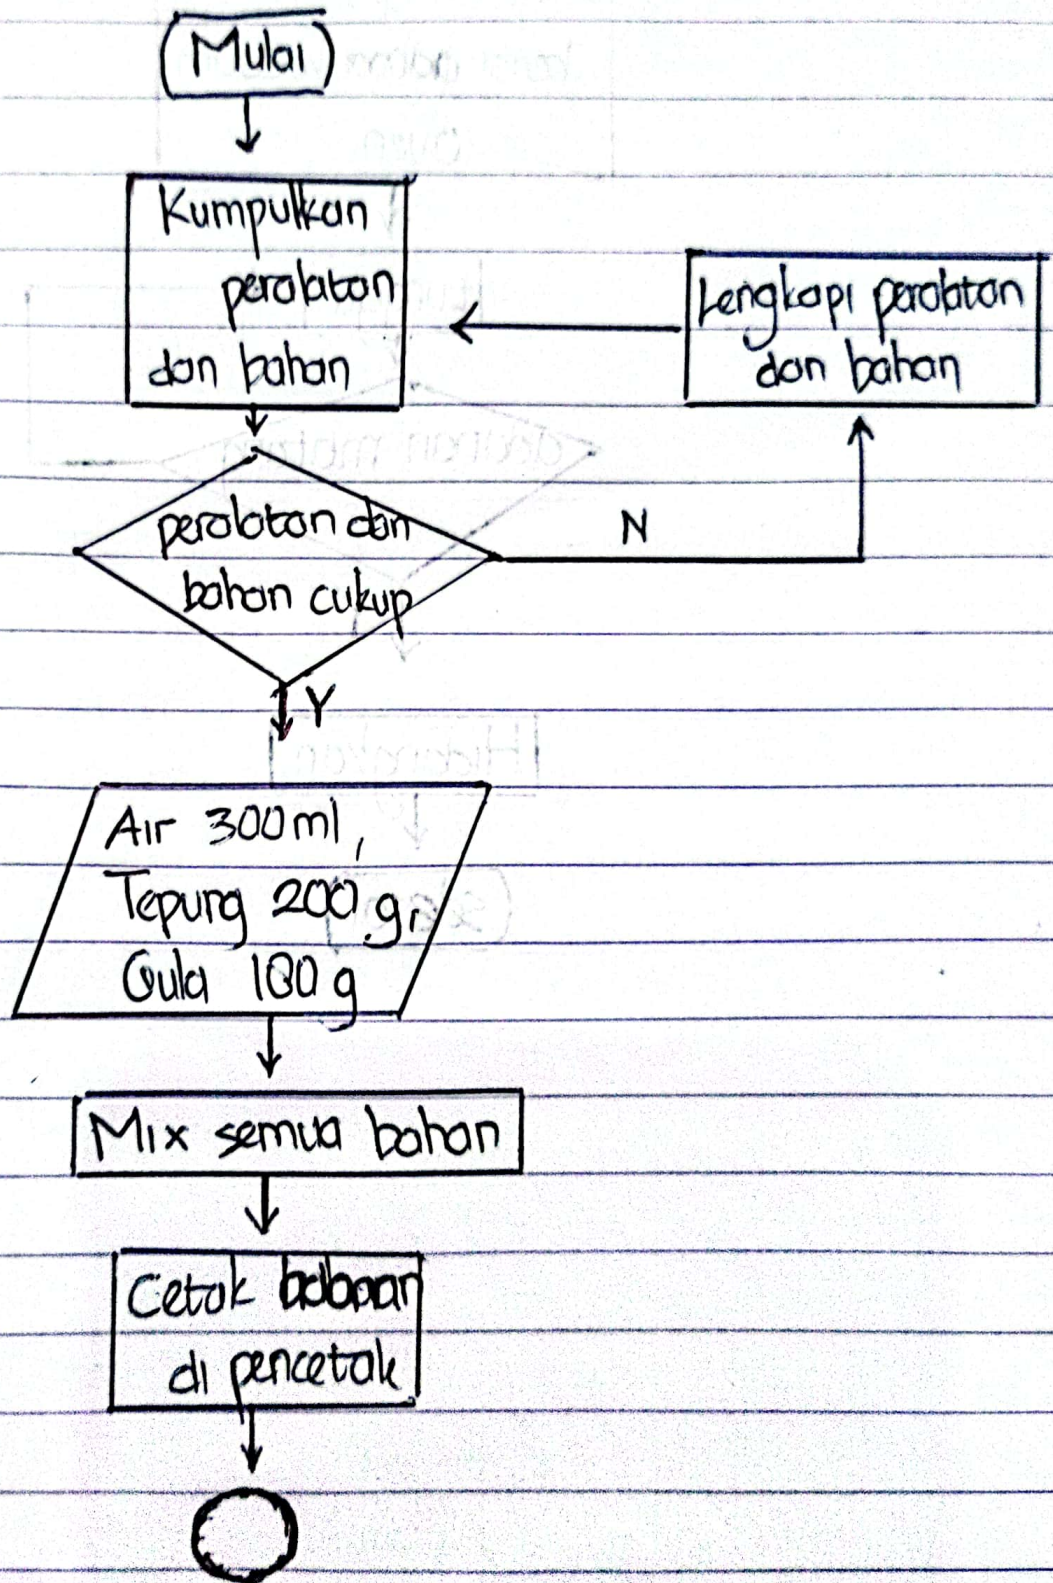 Mulai
Kumpulkan
peralatan
dan bahan
Lengkapi peralatan
dan bahan
peralatan dan
bahan cukup
N
Y
Air 300 ml,
Tepung 200 g,
Gula 100 g
Mix semua bahan
Cetak
di pencetak